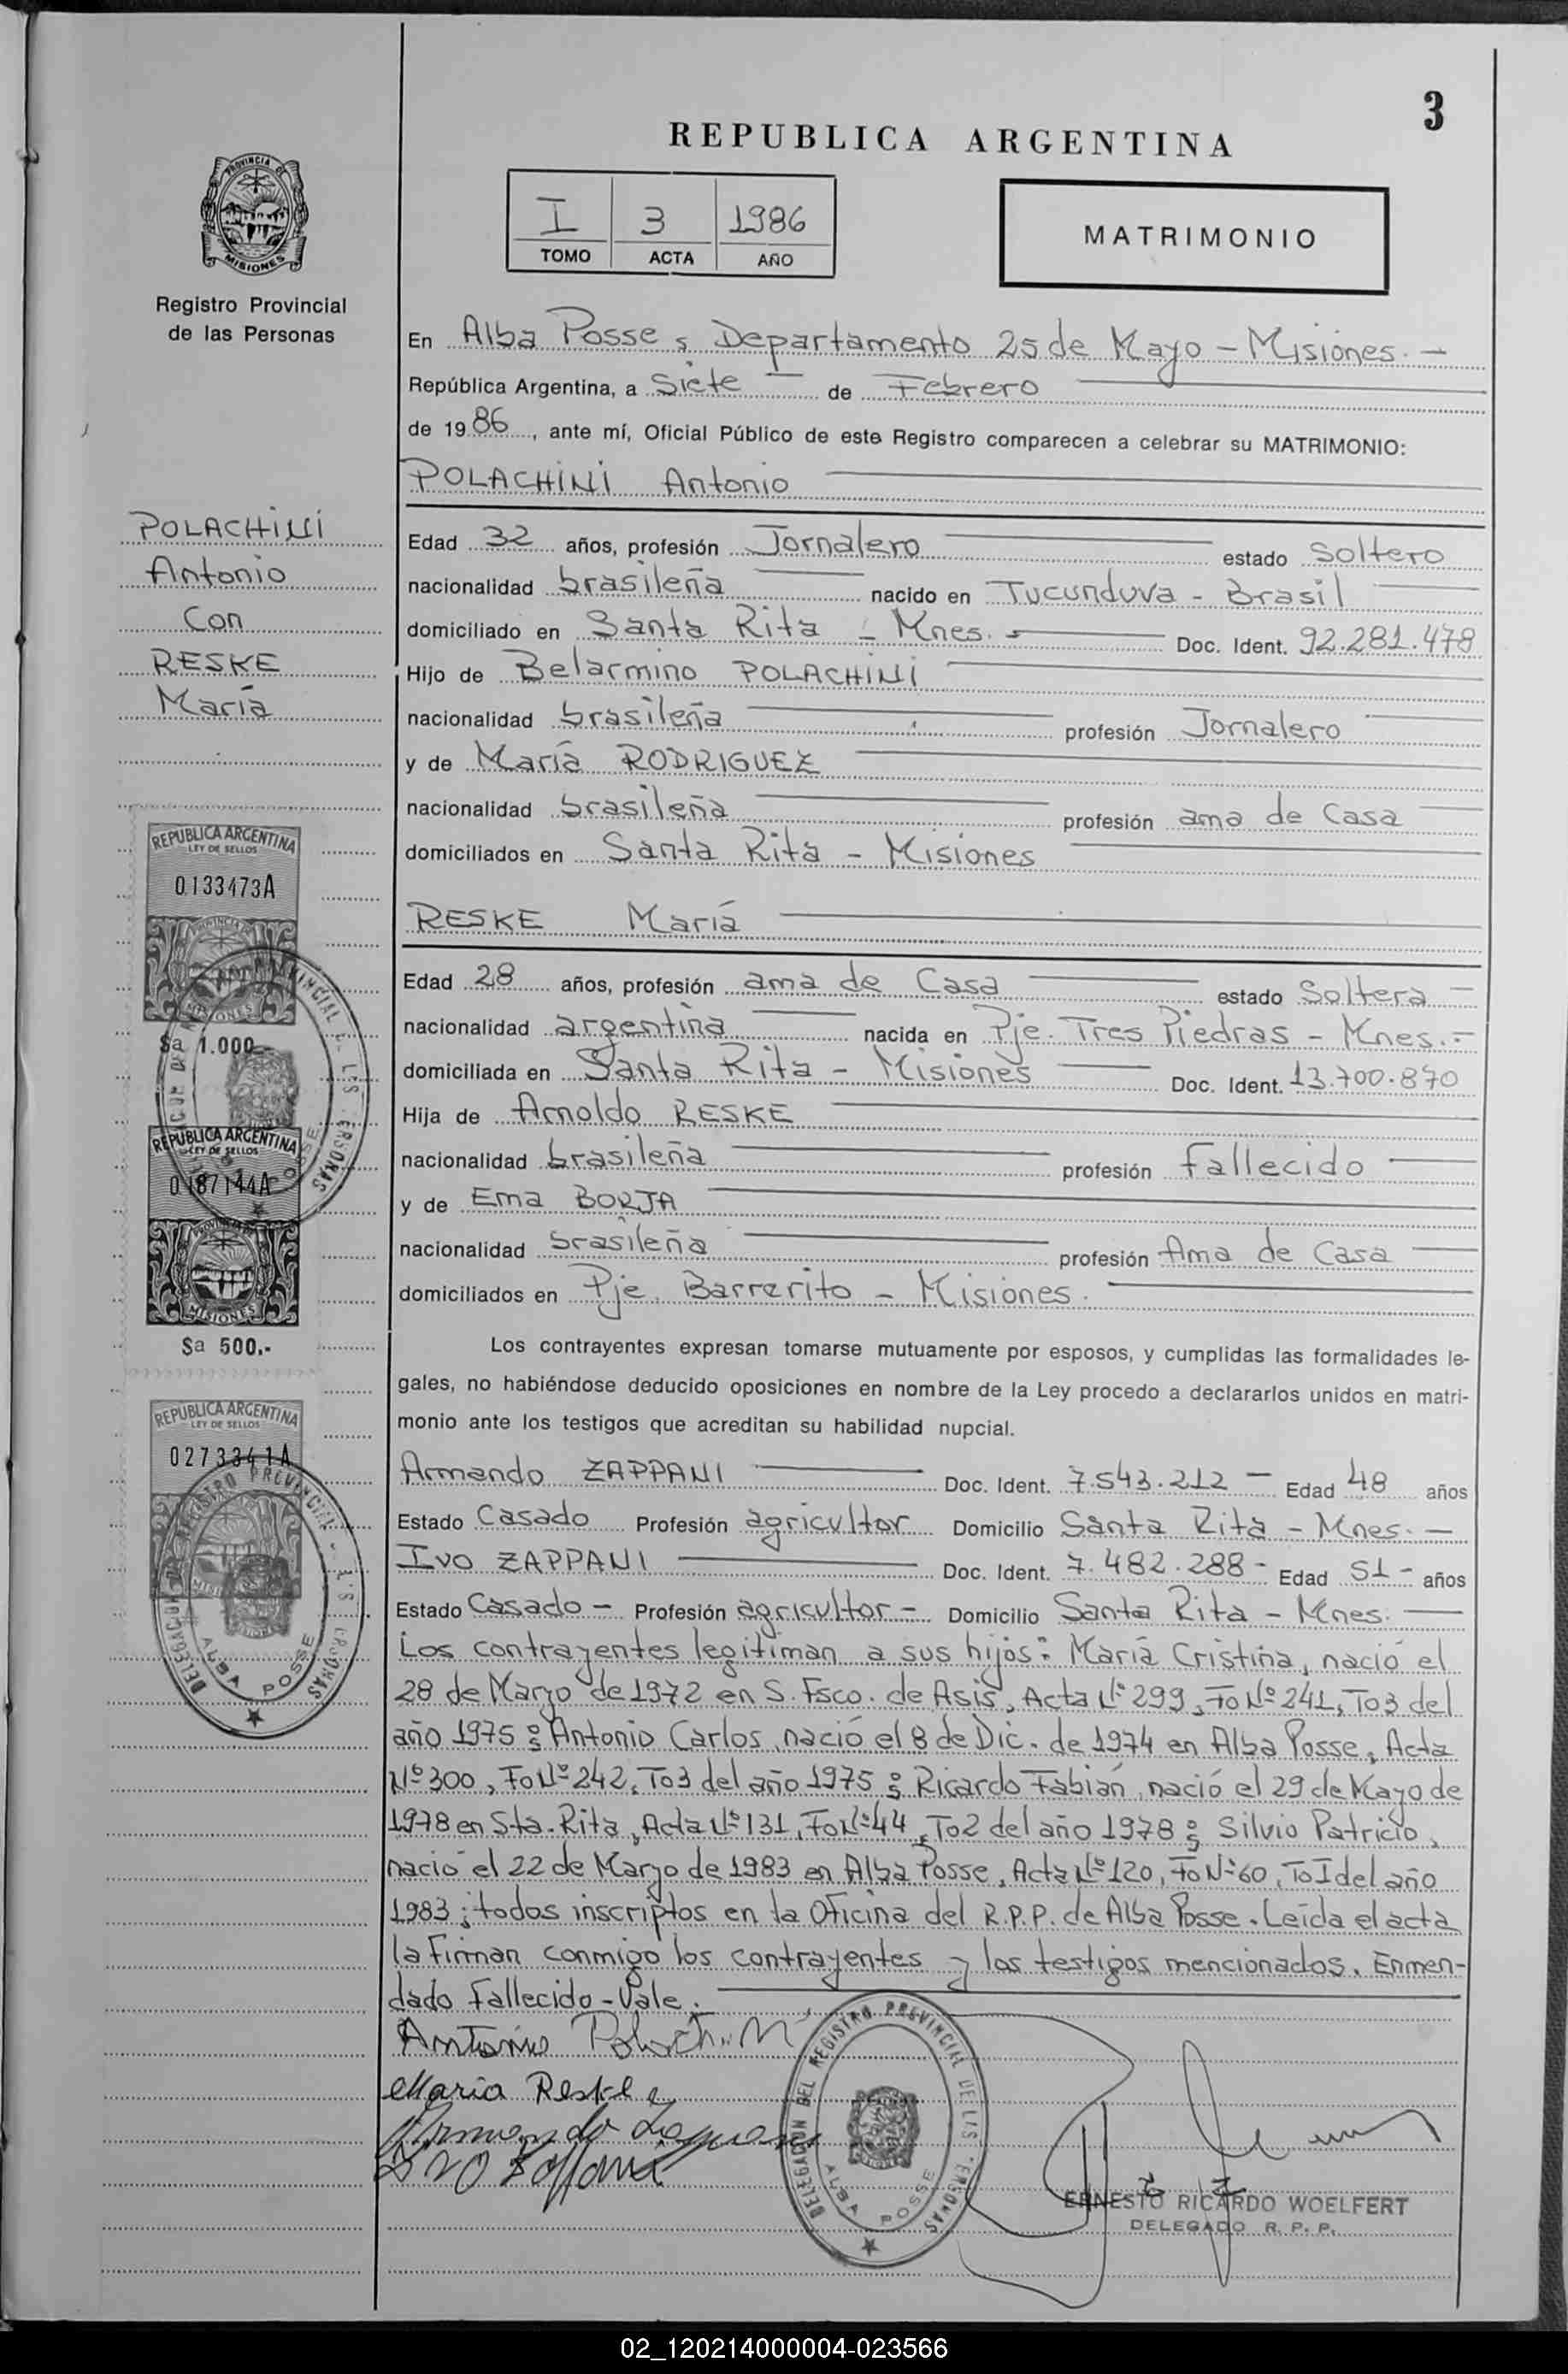 3
REPUBLICA ARGENTINA
I 3 1986
TOMO ACTA AÑO
MATRIMONIO
PROVINCIA DE
MISIONES
Registro Provincial
de las Personas
En Alba Posse, Departamento 25 de Mayo - Misiones. -
República Argentina, a Siete - de Febrero
de 1986, ante mí, Oficial Público de este Registro comparecen a celebrar su MATRIMONIO:
POLACHINI Antonio
POLACHINI
Antonio
Con
RESKE
María
Edad 32 años, profesión Jornalero estado Soltero
nacionalidad brasileña nacido en Tucunduva - Brasil
domiciliado en Santa Rita - Mnes. - Doc. Ident. 92.281.478
Hijo de Belarmino POLACHINI
nacionalidad brasileña profesión Jornalero
y de María RODRIGUEZ
nacionalidad brasileña profesión ama de Casa
domiciliados en Santa Rita - Misiones
RESKE María
Edad 28 años, profesión ama de Casa estado Soltera -
nacionalidad argentina nacida en Pje. Tres Piedras - Mnes. -
domiciliada en Santa Rita - Misiones Doc. Ident. 13.700.870
Hija de Arnoldo RESKE
nacionalidad brasileña profesión fallecido
y de Ema BORJA
nacionalidad brasileña profesión Ama de Casa
domiciliados en Pje. Barrerito - Misiones.
REPUBLICA ARGENTINA
LEY DE SELLOS
0133473A
MISIONES
$a 1.000.-
REPUBLICA ARGENTINA
LEY DE SELLOS
0187144A
MISIONES
$a 500.-
REPUBLICA ARGENTINA
LEY DE SELLOS
0273341A
DELEGACION DEL REGISTRO PROVINCIAL DE LAS PERSONAS
ALBA POSSE
Los contrayentes expresan tomarse mutuamente por esposos, y cumplidas las formalidades le-
gales, no habiéndose deducido oposiciones en nombre de la Ley procedo a declararlos unidos en matri-
monio ante los testigos que acreditan su habilidad nupcial.
Armando ZAPPANI Doc. Ident. 7.543.212 - Edad 48 años
Estado Casado Profesión agricultor Domicilio Santa Rita - Mnes. -
Ivo ZAPPANI Doc. Ident. 7.482.288 - Edad 51 - años
Estado Casado - Profesión agricultor - Domicilio Santa Rita - Mnes. -
Los contrayentes legitiman a sus hijos: María Cristina, nació el
28 de Marzo de 1972 en S. Fsco. de Asis, Acta Nº 299, Fo Nº 241, To 3 del
año 1975; Antonio Carlos, nació el 8 de Dic. de 1974 en Alba Posse, Acta
Nº 300, Fo Nº 242, To 3 del año 1975; Ricardo Fabián, nació el 29 de Mayo de
1978 en Sta. Rita, Acta Nº 131, Fo Nº 44, To 2 del año 1978; Silvio Patricio,
nació el 22 de Marzo de 1983 en Alba Posse, Acta Nº 120, Fo Nº 60, To I del año
1983; todos inscriptos en la Oficina del R.P.P. de Alba Posse. Leída el acta
la firman conmigo los contrayentes y los testigos mencionados. Enmen-
dado fallecido - Vale.
María Reske
DELEGACION DEL REGISTRO PROVINCIAL DE LAS PERSONAS
ALBA POSSE
ERNESTO RICARDO WOELFERT
DELEGADO R. P. P.
02_120214000004-023566